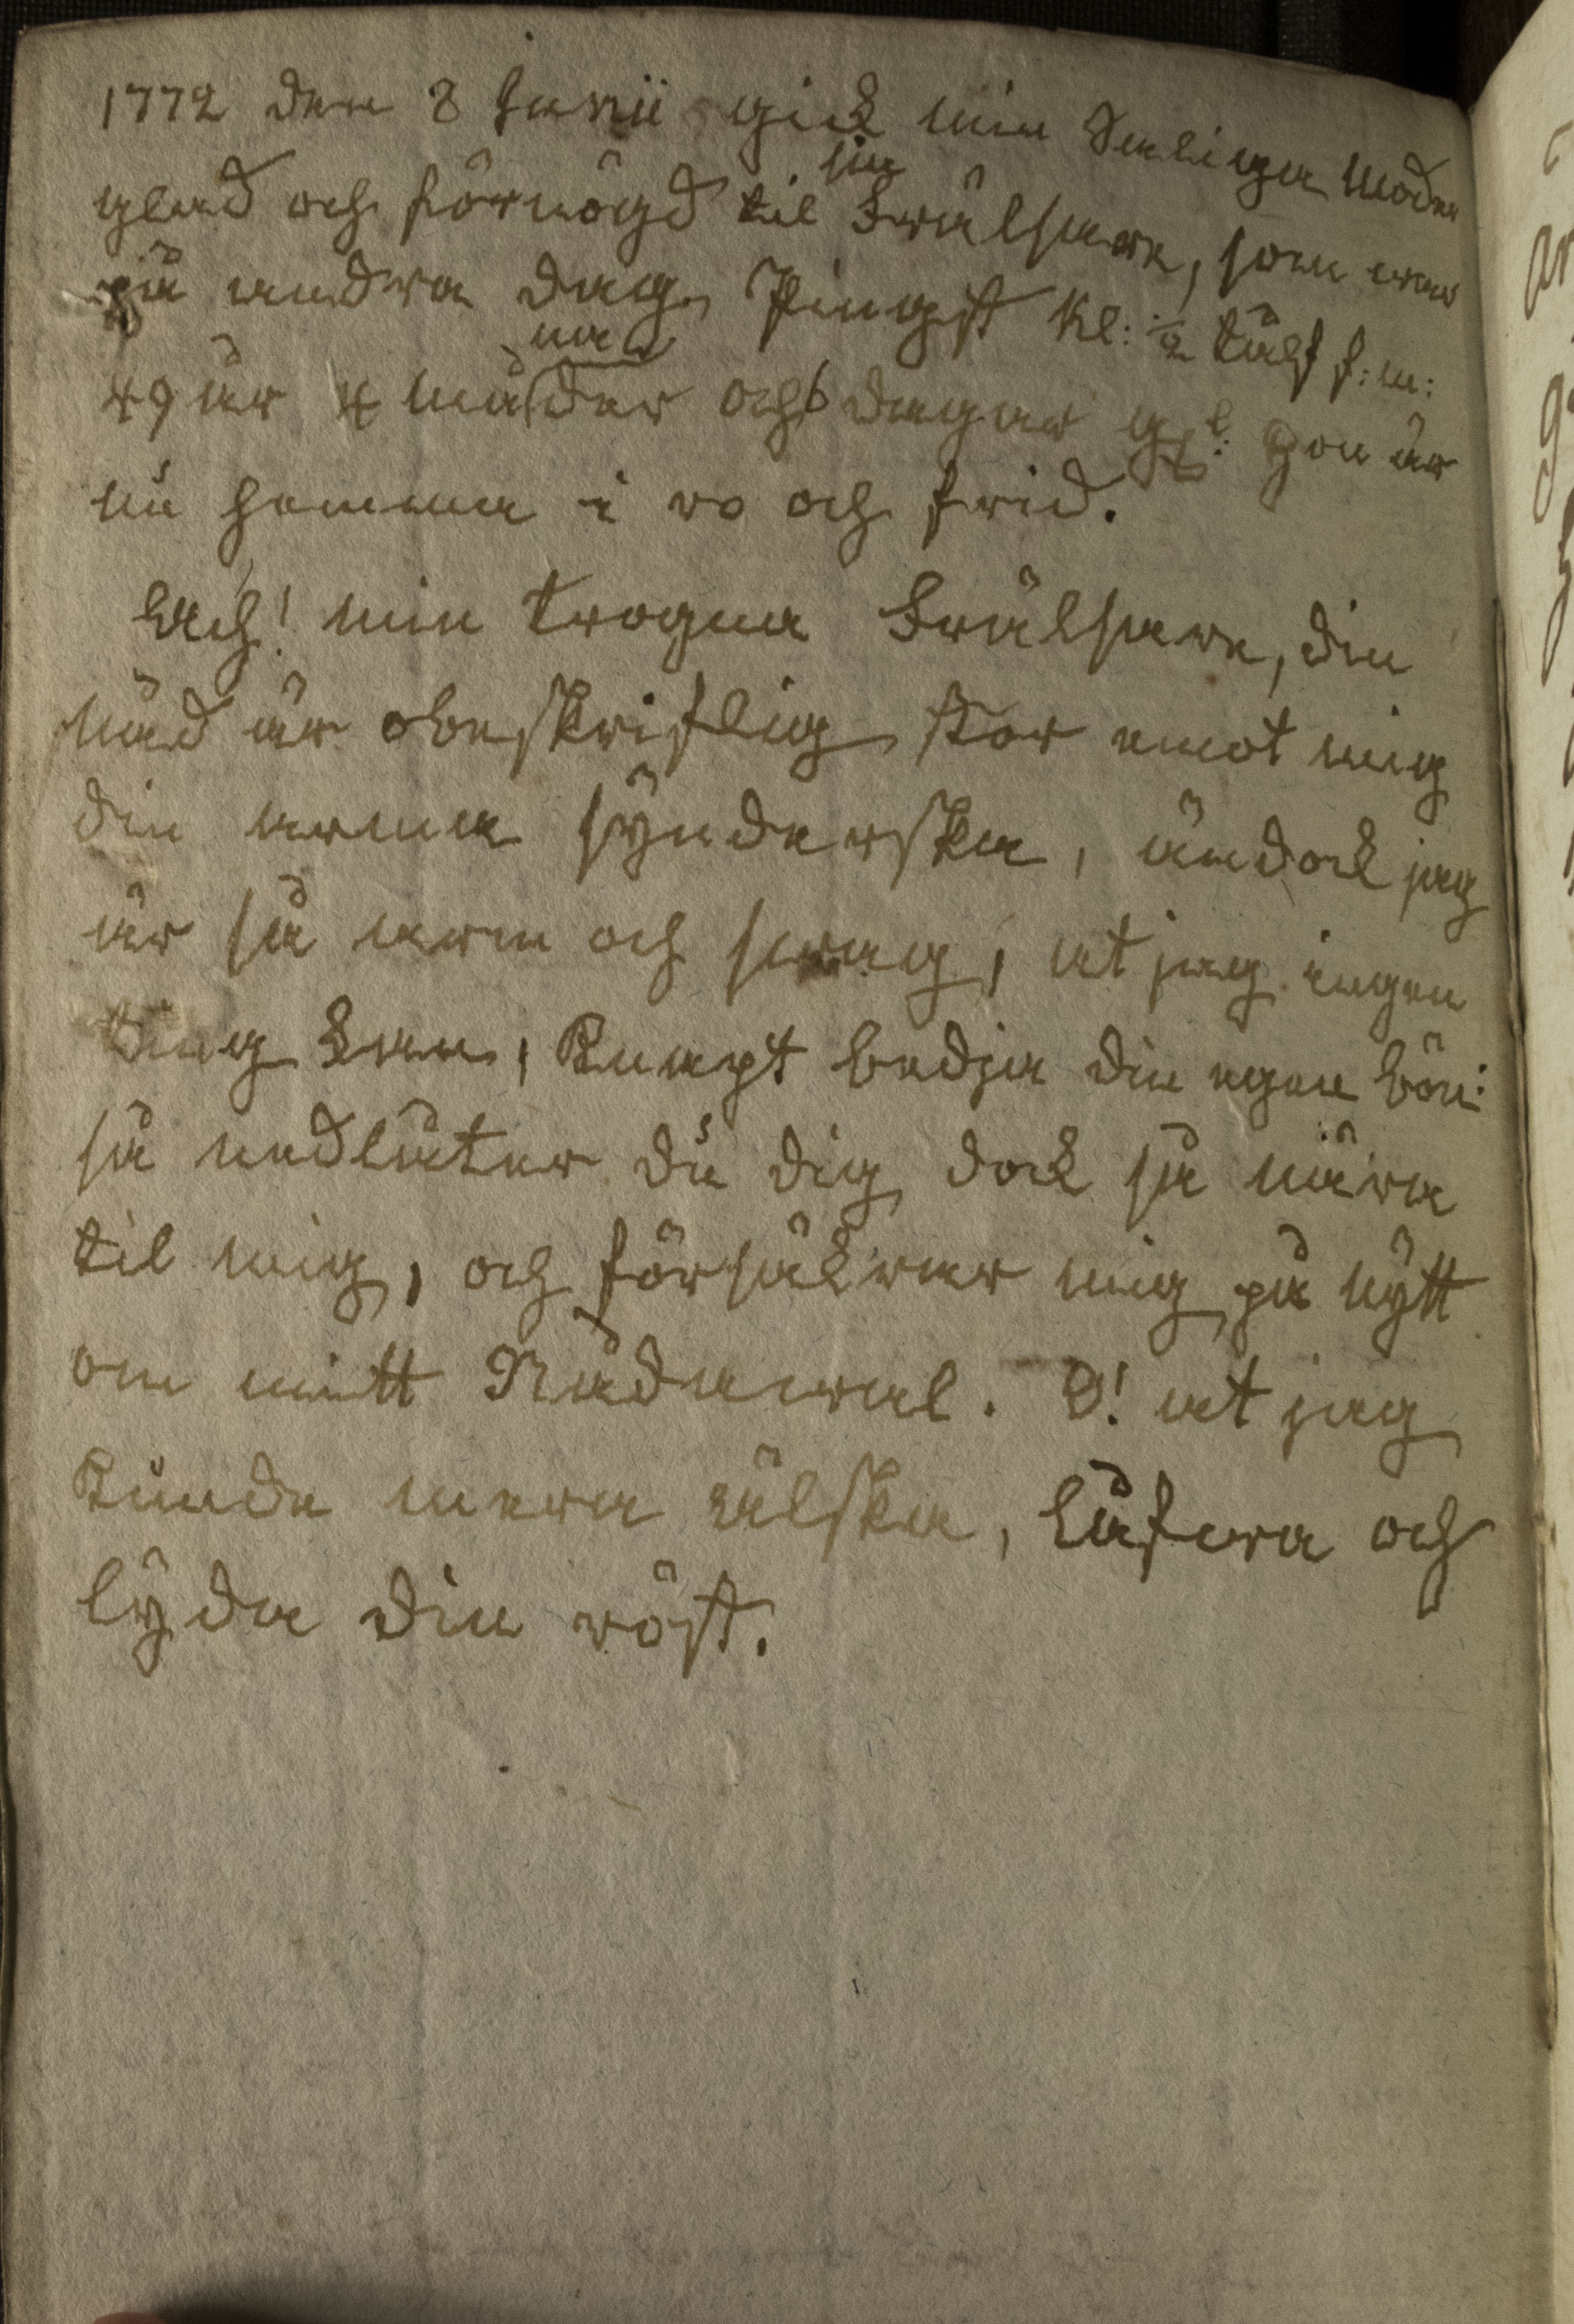 1772 den 8 Junii gick min Saeliga Moder
glad och förnögd til sin Frälsare, som war
på andra dag Pingst Kl: ½ tålf f:m:
49 år 4 månader och 6 dagar gl: Hon är
nu hemma i ro och frid.
Ach! min trogna Frälsare, din
nåd är obeskriflig stor emot mig
din arma synderska, ändock jag
är så arm och swag, at jag ingen
ting kan, knapt bedja din egen bön:
så nedlåter du dig dock så nära
til mig, och försäkrar mig på nytt
om mitt Nådawal. O! at jag
kunde mera älska, låfwa och
lyda din röst.